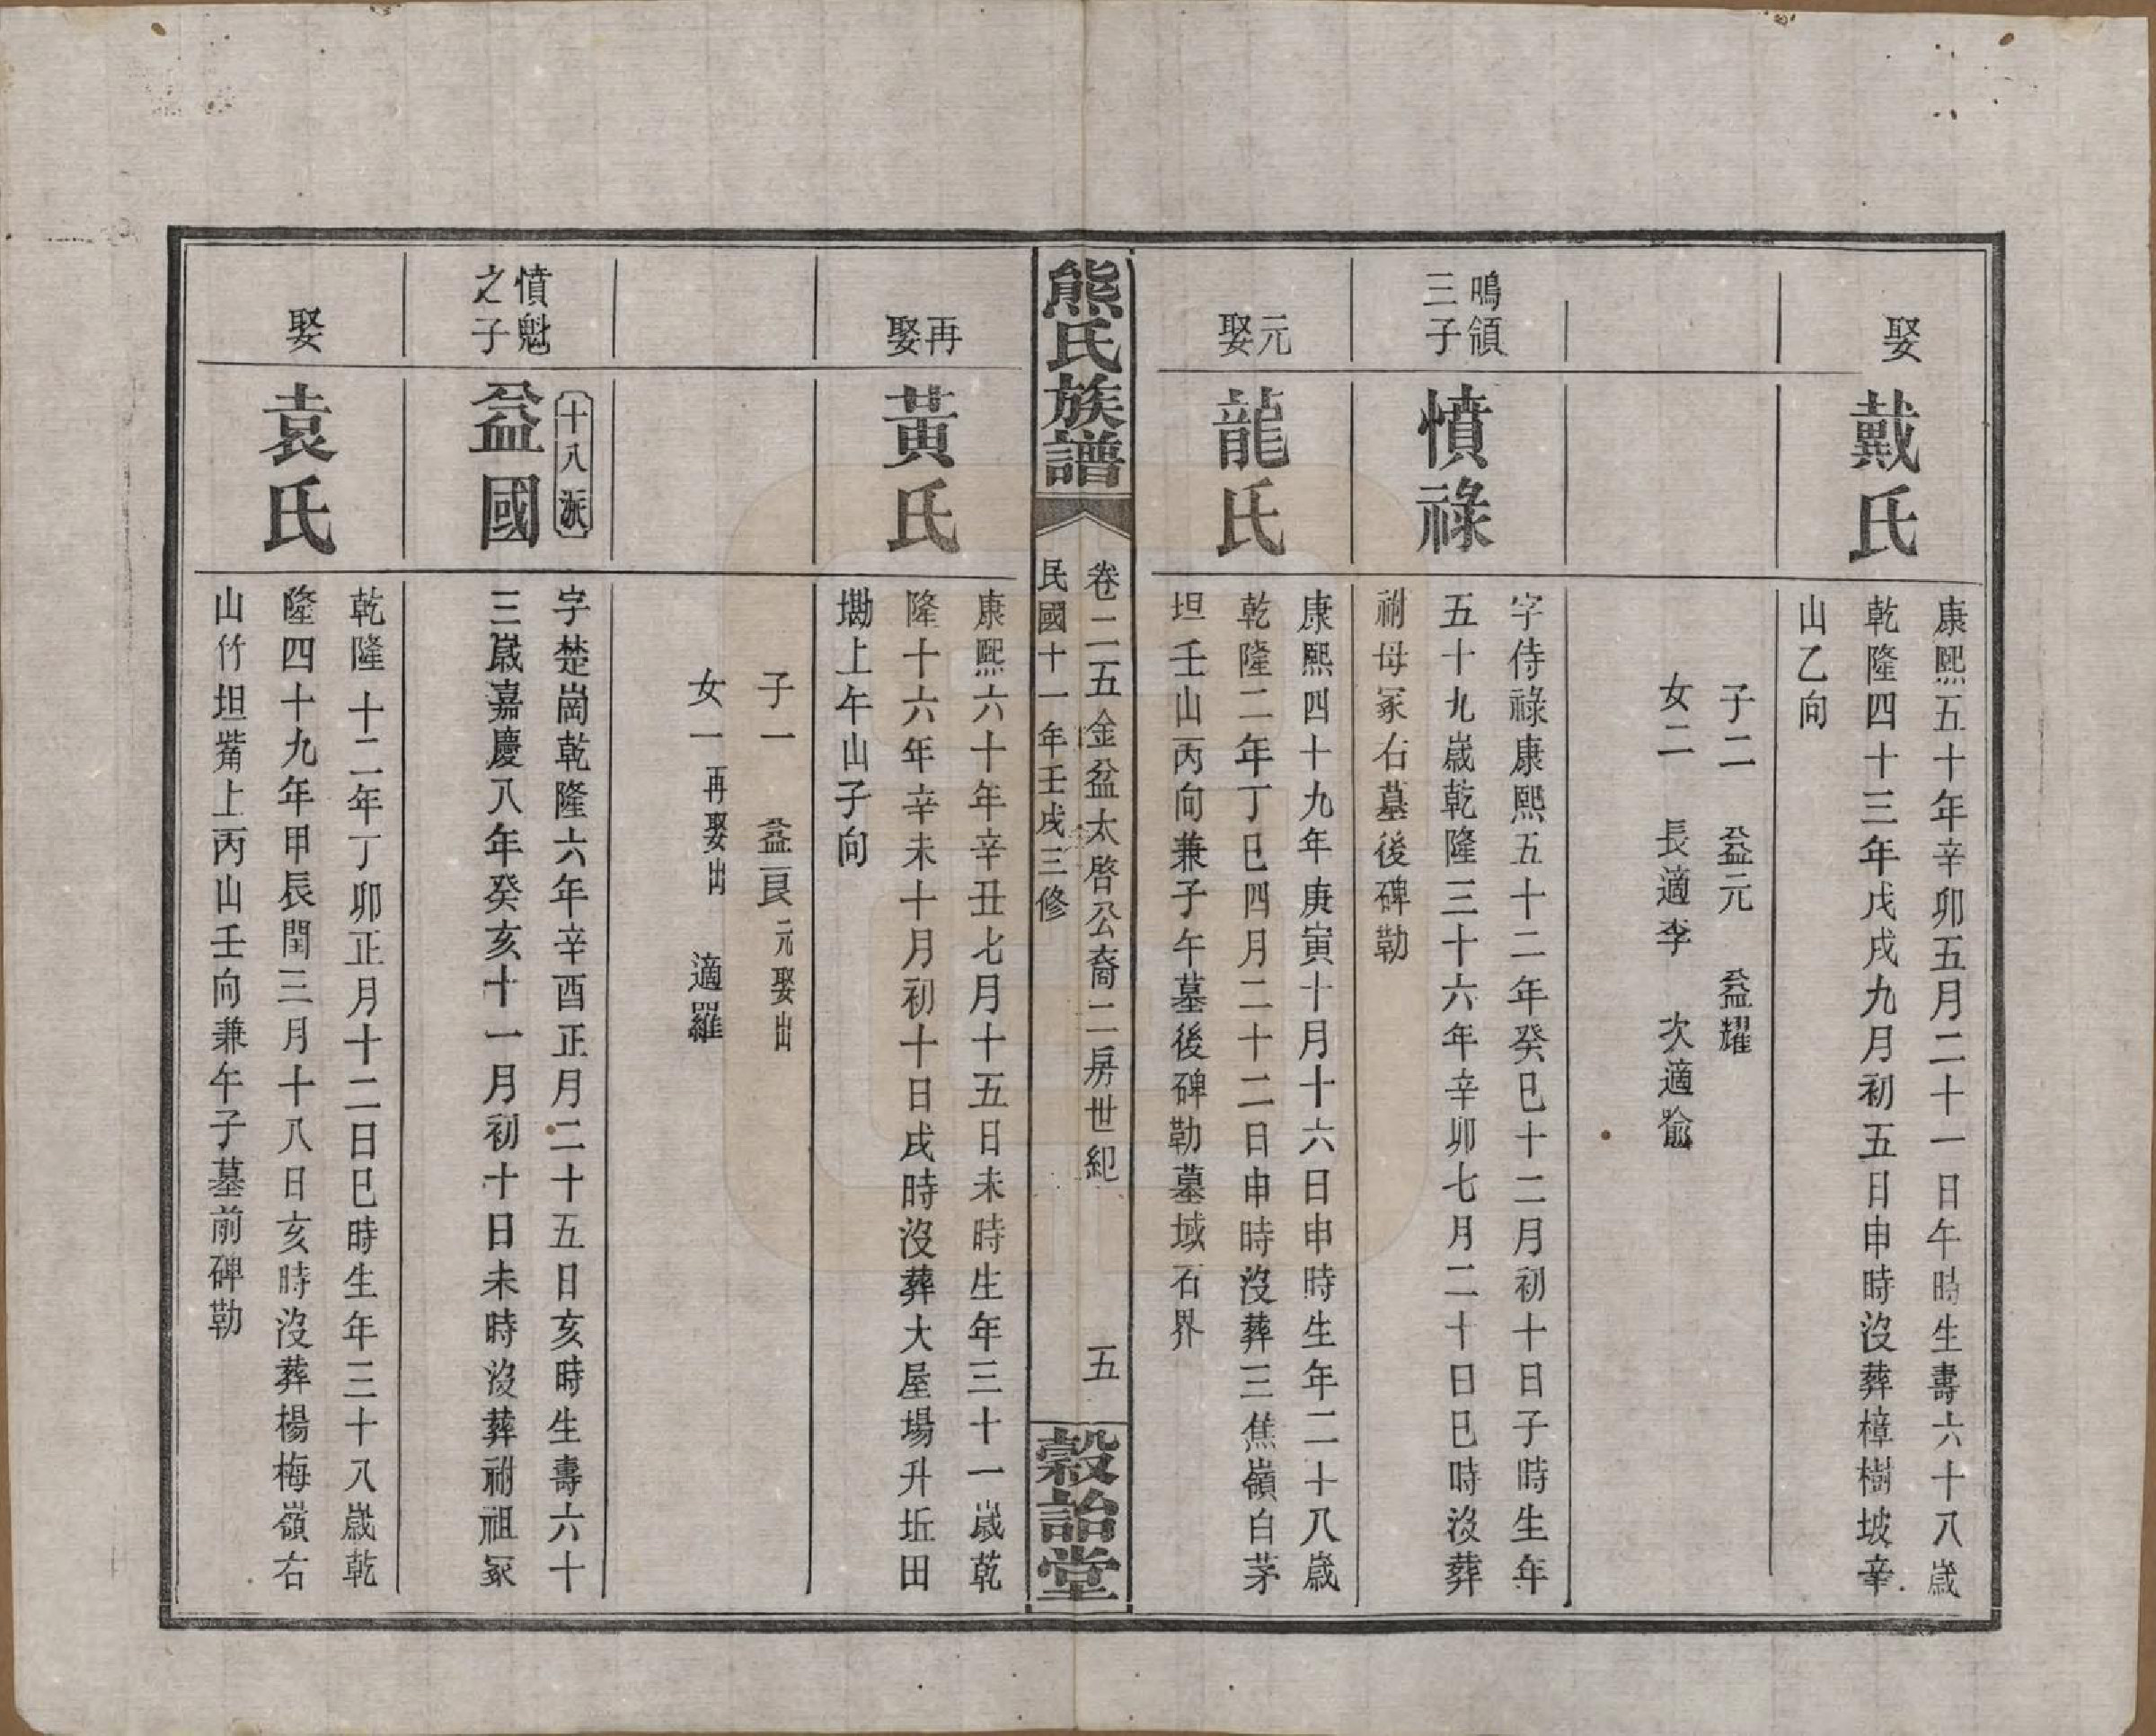 娶
戴氏
康熙五十年辛卯五月二十一日午時生壽六十八歲
乾隆四十三年戊戌九月初五日申時沒葬樟樹坡辛
山乙向
子二 益元 益耀
女二 長適李 次適喻
鳴領
三子
憤祿
字侍祿康熙五十二年癸巳十二月初十日子時生年
五十九歲乾隆三十六年辛卯七月二十日巳時沒葬
祔母冢右墓後碑勒
元
娶
龍氏
康熙四十九年庚寅十月十六日申時生年二十八歲
乾隆二年丁巳四月二十二日申時沒葬三焦嶺白茅
坦壬山丙向兼子午墓後碑勒墓域石界
熊氏族譜
卷二五金盆太啓公裔二房世紀 五
民國十一年壬戌三修
穀詒堂
再
娶
黃氏
康熙六十年辛丑七月十五日未時生年三十一歲乾
隆十六年辛未十月初十日戌時沒葬大屋場升坵田
墈上午山子向
子一 益艮元娶出
女一再娶出 適羅
憤魁
之子
十八派
益國
字楚崗乾隆六年辛酉正月二十五日亥時生壽六十
三歲嘉慶八年癸亥十一月初十日未時沒葬祔祖冢
娶
袁氏
乾隆十二年丁卯正月十二日巳時生年三十八歲乾
隆四十九年甲辰閏三月十八日亥時沒葬楊梅嶺右
山竹坦觜上丙山壬向兼午子墓前碑勒